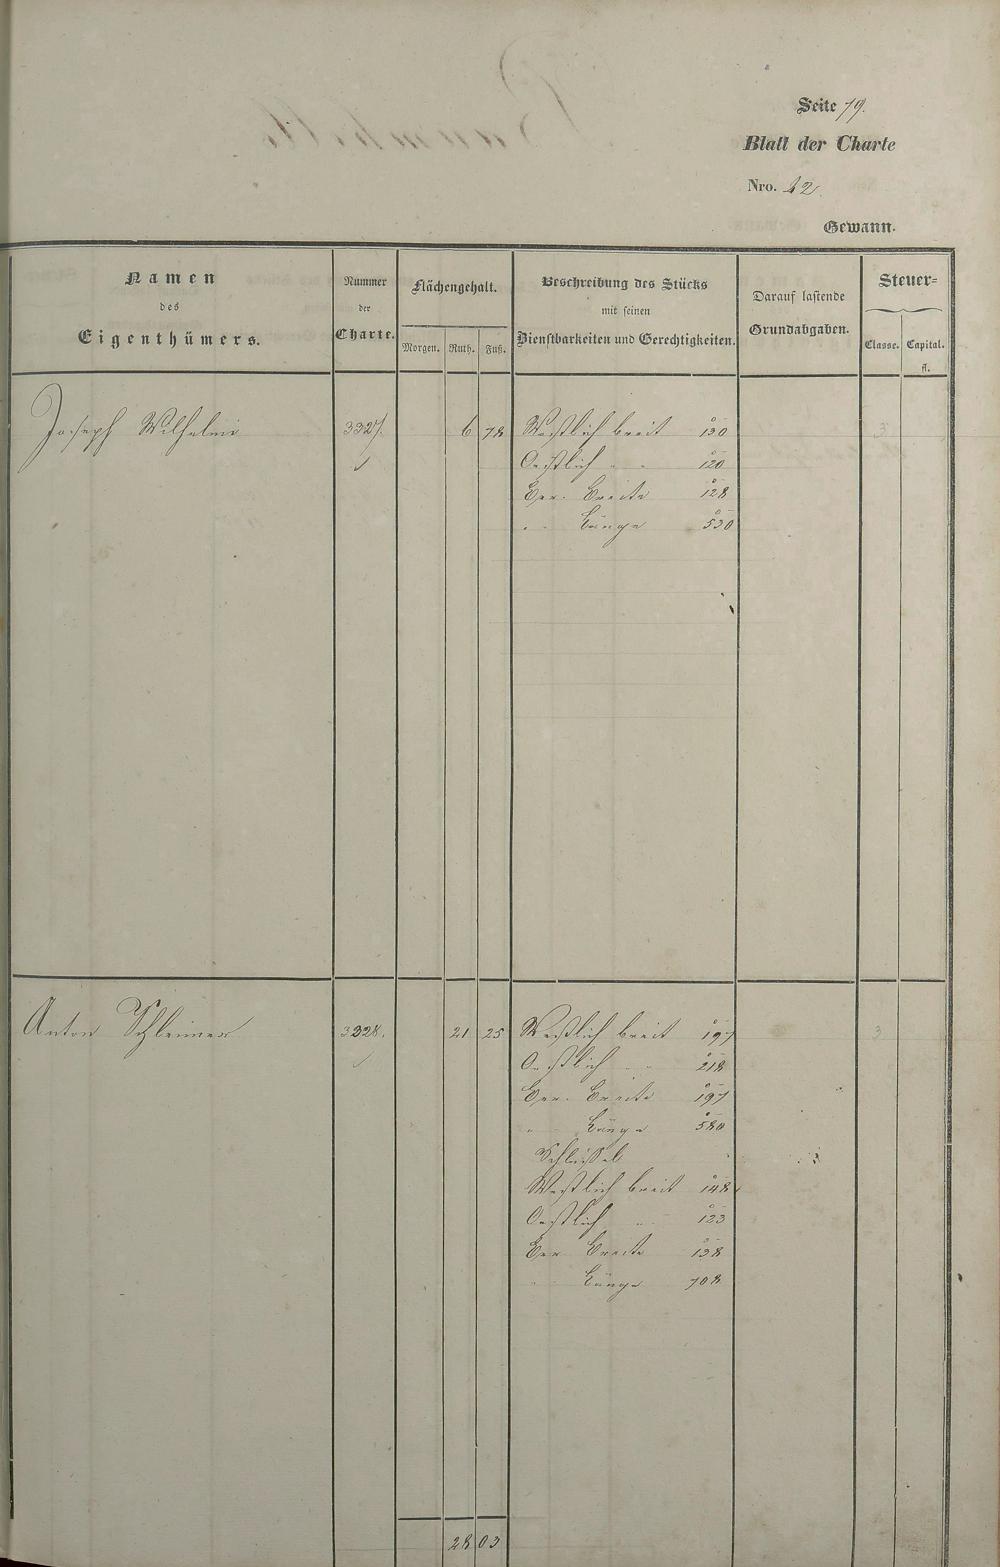 Seite 79.
Blatt der Charte
Nro. 42
Gewann.
Namen
des
Eigenthümers.
Nummer
der
Charte.
Flächengehalt.
Morgen. Ruth. Fuß.
Beschreibung des Stücks
mit seinen
Dienstbarkeiten und Gerechtigkeiten.
Darauf lastende
Grundabgaben.
Steuer-
Classe. Capital.
fl.
Joseph Wilhelmi 3327. 6 78 Westlich breit 130
Oestlich " " 120
Ber. Breite 128
" Länge 530
Anton Schleimer 3328. 21 25 Westlich breit 197 3
Oestlich " " 218
Ber. Breite 197
" Länge 580
Schlüssel
Westlich breit 148
Oestlich " " 123
Ber. Breite 138
" Länge 708
28 03